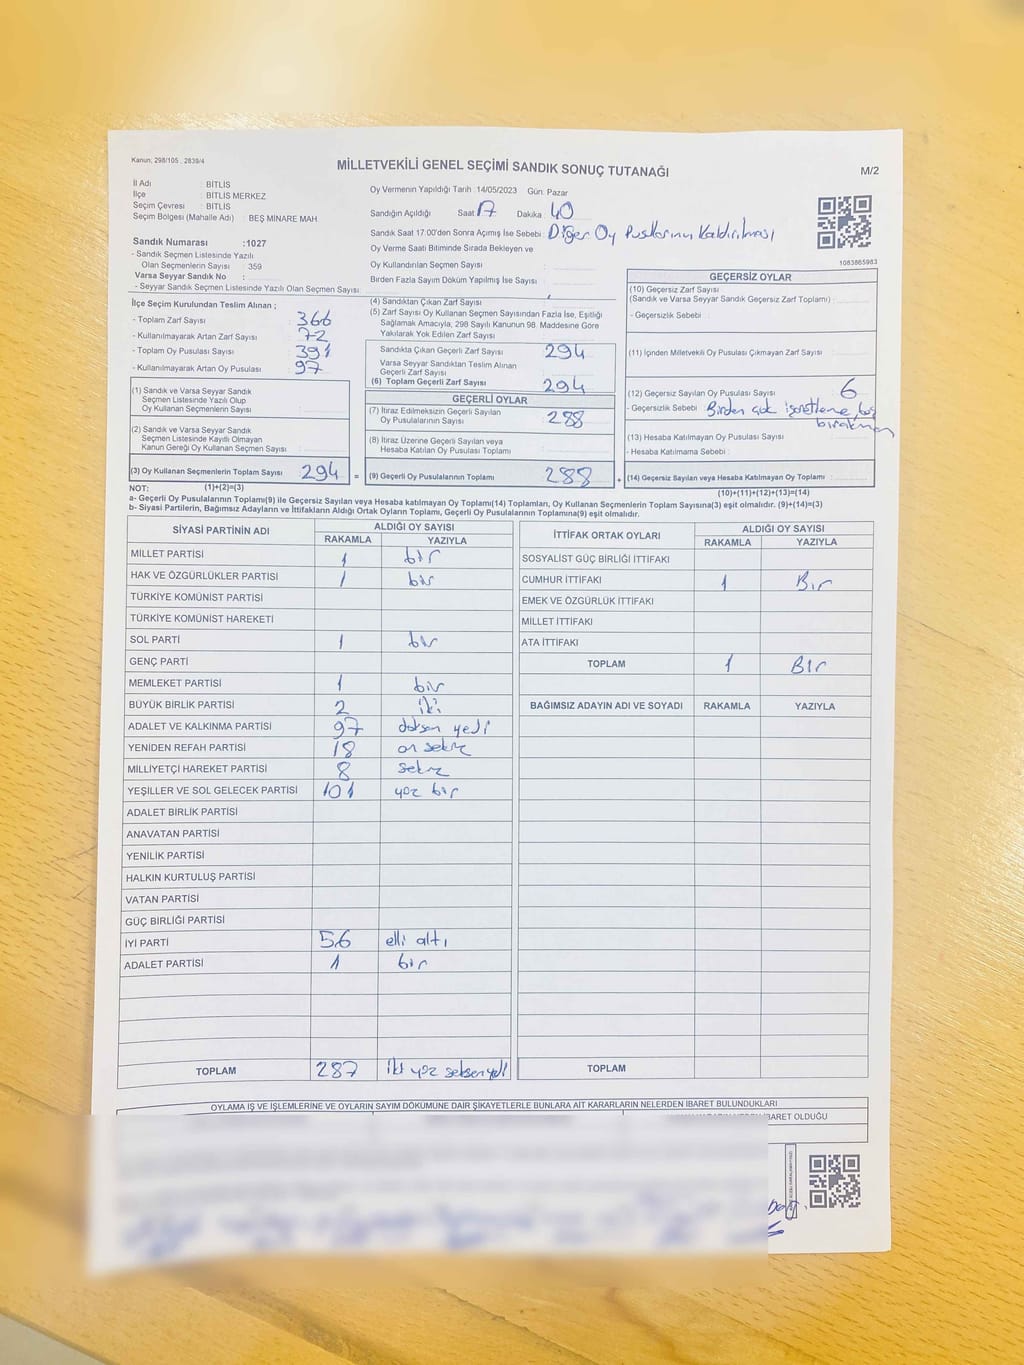 Kanun; 298/105 , 2839/4
MİLLETVEKİLİ GENEL SEÇİMİ SANDIK SONUÇ TUTANAĞI
M/2
İl Adı : BİTLİS
İlçe : BİTLİS MERKEZ
Seçim Çevresi : BİTLİS
Seçim Bölgesi (Mahalle Adı) : BEŞ MİNARE MAH.
Oy Vermenin Yapıldığı Tarih :14/05/2023 Gün: Pazar
Sandığın Açıldığı Saat 17 Dakika : 40
Sandık Saat 17.00'den Sonra Açılmış İse Sebebi : Diğer Oy Pusularının Kaldırılması
Oy Verme Saati Bitiminde Sırada Bekleyen ve
Oy Kullandırılan Seçmen Sayısı :
Birden Fazla Sayım Döküm Yapılmış İse Sayısı :
1083865983
Sandık Numarası :1027
- Sandık Seçmen Listesinde Yazılı
Olan Seçmenlerin Sayısı : 359
Varsa Seyyar Sandık No :
- Seyyar Sandık Seçmen Listesinde Yazılı Olan Seçmen Sayısı:
İlçe Seçim Kurulundan Teslim Alınan ;
- Toplam Zarf Sayısı : 366
- Kullanılmayarak Artan Zarf Sayısı : 72
- Toplam Oy Pusulası Sayısı : 391
- Kullanılmayarak Artan Oy Pusulası : 97
(1) Sandık ve Varsa Seyyar Sandık
Seçmen Listesinde Yazılı Olup
Oy Kullanan Seçmenlerin Sayısı :
(2) Sandık ve Varsa Seyyar Sandık
Seçmen Listesinde Kayıtlı Olmayan
Kanun Gereği Oy Kullanan Seçmen Sayısı :
(3) Oy Kullanan Seçmenlerin Toplam Sayısı : 294 =
(1)+(2)=(3)
(4) Sandıktan Çıkan Zarf Sayısı :
(5) Zarf Sayısı Oy Kullanan Seçmen Sayısından Fazla İse, Eşitliği
Sağlamak Amacıyla, 298 Sayılı Kanunun 98. Maddesine Göre
Yakılarak Yok Edilen Zarf Sayısı :
Sandıkta Çıkan Geçerli Zarf Sayısı : 294
Varsa Seyyar Sandıktan Teslim Alınan
Geçerli Zarf Sayısı :
(6) Toplam Geçerli Zarf Sayısı : 294
GEÇERLİ OYLAR
(7) İtiraz Edilmeksizin Geçerli Sayılan
Oy Pusulalarının Sayısı : 288
(8) İtiraz Üzerine Geçerli Sayılan veya
Hesaba Katılan Oy Pusulası Toplamı :
(9) Geçerli Oy Pusulalarının Toplamı : 288 +
GEÇERSİZ OYLAR
(10) Geçersiz Zarf Sayısı
(Sandık ve Varsa Seyyar Sandık Geçersiz Zarf Toplamı) :
- Geçersizlik Sebebi :
(11) İçinden Milletvekili Oy Pusulası Çıkmayan Zarf Sayısı :
(12) Geçersiz Sayılan Oy Pusulası Sayısı : 6
- Geçersizlik Sebebi : Birden çok işaretleme, boş
bırakma
(13) Hesaba Katılmayan Oy Pusulası Sayısı :
- Hesaba Katılmama Sebebi :
(14) Geçersiz Sayılan veya Hesaba Katılmayan Oy Toplamı :
(10)+(11)+(12)+(13)=(14)
NOT:
a- Geçerli Oy Pusulalarının Toplamı(9) ile Geçersiz Sayılan veya Hesaba katılmayan Oy Toplamı(14) Toplamları, Oy Kullanan Seçmenlerin Toplam Sayısına(3) eşit olmalıdır. (9)+(14)=(3)
b- Siyasi Partilerin, Bağımsız Adayların ve İttifakların Aldığı Ortak Oyların Toplamı, Geçerli Oy Pusulalarının Toplamına(9) eşit olmalıdır.
SİYASİ PARTİNİN ADI ALDIĞI OY SAYISI
RAKAMLA YAZIYLA
MİLLET PARTİSİ 1 bir
HAK VE ÖZGÜRLÜKLER PARTİSİ 1 bir
TÜRKİYE KOMÜNİST PARTİSİ
TÜRKİYE KOMÜNİST HAREKETİ
SOL PARTİ 1 bir
GENÇ PARTİ
MEMLEKET PARTİSİ 1 bir
BÜYÜK BİRLİK PARTİSİ 2 iki
ADALET VE KALKINMA PARTİSİ 97 doksan yedi
YENİDEN REFAH PARTİSİ 18 on sekiz
MİLLİYETÇİ HAREKET PARTİSİ 8 sekiz
YEŞİLLER VE SOL GELECEK PARTİSİ 101 yüz bir
ADALET BİRLİK PARTİSİ
ANAVATAN PARTİSİ
YENİLİK PARTİSİ
HALKIN KURTULUŞ PARTİSİ
VATAN PARTİSİ
GÜÇ BİRLİĞİ PARTİSİ
İYİ PARTİ 56 elli altı
ADALET PARTİSİ 1 bir
TOPLAM 287 iki yüz seksen yedi
İTTİFAK ORTAK OYLARI ALDIĞI OY SAYISI
RAKAMLA YAZIYLA
SOSYALİST GÜÇ BİRLİĞİ İTTİFAKI
CUMHUR İTTİFAKI 1 Bir
EMEK VE ÖZGÜRLÜK İTTİFAKI
MİLLET İTTİFAKI
ATA İTTİFAKI
TOPLAM 1 Bir
BAĞIMSIZ ADAYIN ADI VE SOYADI RAKAMLA YAZIYLA
TOPLAM
OYLAMA İŞ VE İŞLEMLERİNE VE OYLARIN SAYIM DÖKÜMÜNE DAİR ŞİKAYETLERLE BUNLARA AİT KARARLARIN NELERDEN İBARET BULUNDUKLARI
İBARET OLDUĞU